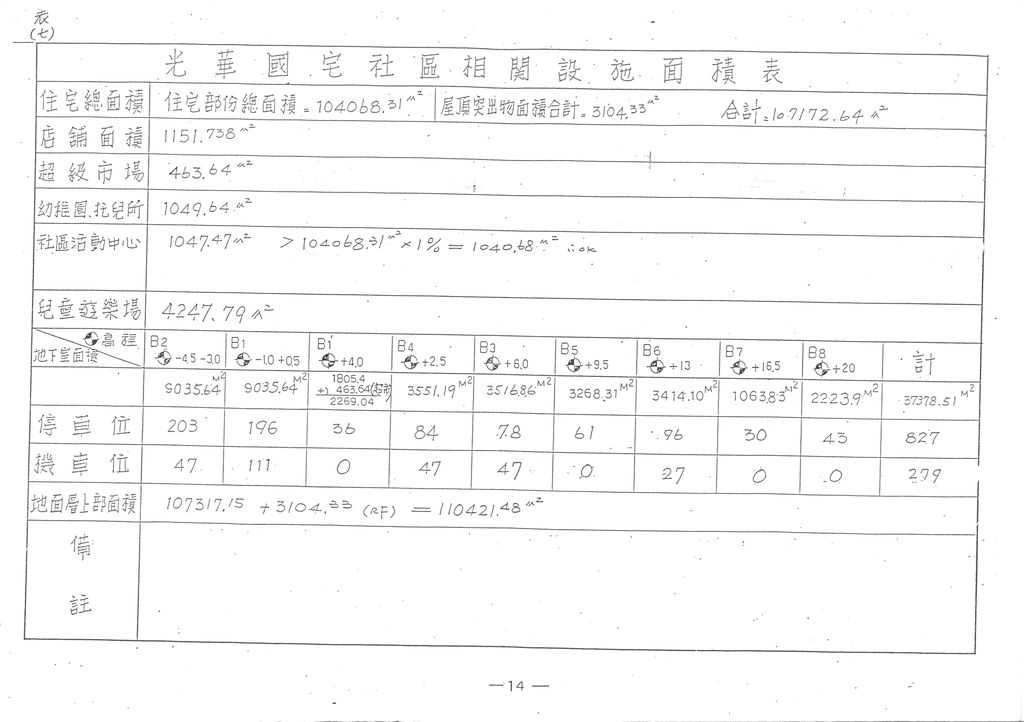 表
(七)
光華國宅社區相關設施面積表
住宅總面積 住宅部份總面積=104068.31m² 屋頂突出物面積合計=3104.33m² 合計=107172.64m²
店舖面積 1151.738m²
超級市場 463.64m²
幼稚園.托兒所 1049.64m²
社區活動中心 1047.47m² > 104068.31m²×1%=1040.68m² ∴ok
兒童遊樂場 4247.79m²
高程 B2 B1 B1' B4 B3 B5 B6 B7 B8 計
地下室面積 -4.5 -3.0 -1.0 +0.5 +4.0 +2.5 +6.0 +9.5 +13 +16.5 +20
9035.64M² 9035.64M² 1805.4 +) 463.64(超市) 2269.04 3551.19M² 3516.86M² 3268.31M² 3414.10M² 1063.83M² 2223.9M² 37378.51M²
停車位 203 196 36 84 78 61 96 30 43 827
機車位 47 111 0 47 47 0 27 0 0 279
地面層上部面積 107317.15 +3104.33 (RF) = 110421.48m²
備
註
—14—